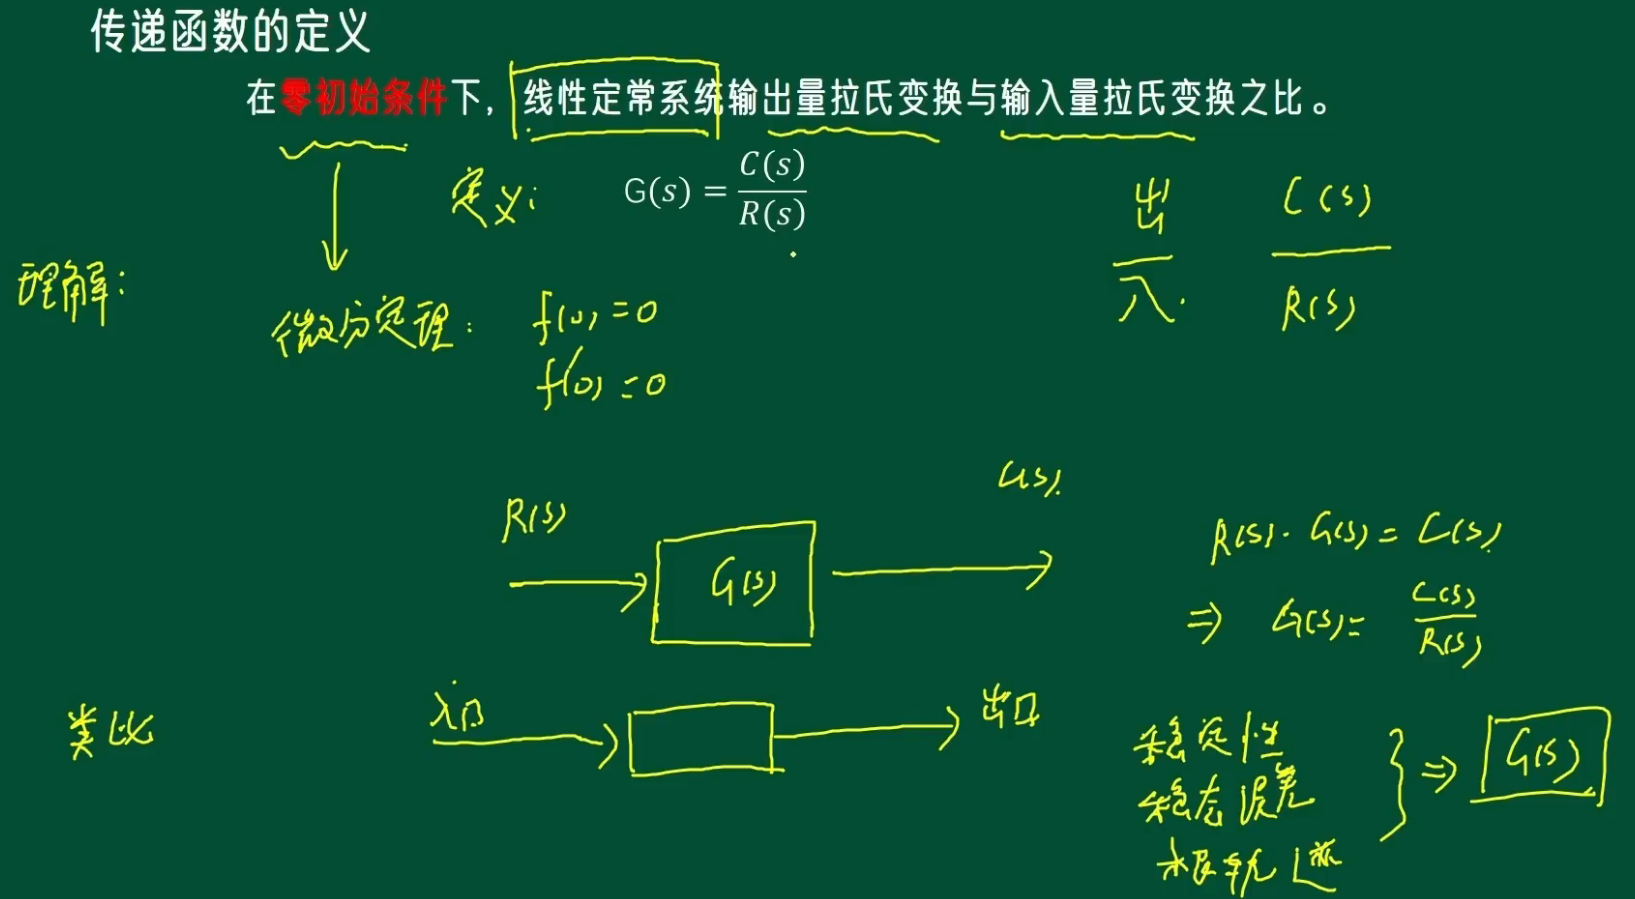 传递函数的定义
在零初始条件下，线性定常系统输出量拉氏变换与输入量拉氏变换之比。
定义： G(s) = C(s) / R(s)
出 / 入 C(s) / R(s)
理解：
微分定理： f(0) = 0
f'(0) = 0
R(s) G(s) C(s)
R(s)·G(s) = C(s)
⇒ G(s) = C(s) / R(s)
类比 入口 出口
稳定性
稳态误差
根轨迹
⇒ G(s)